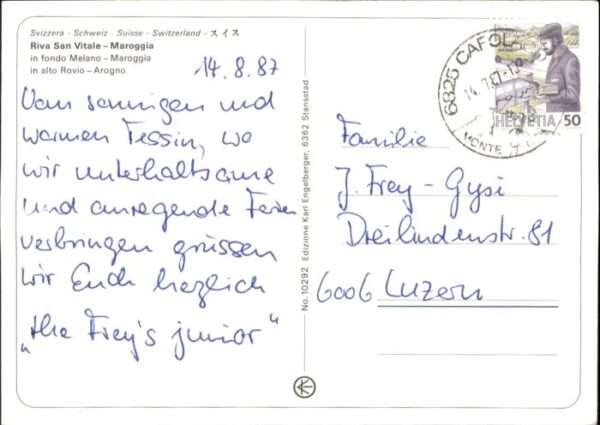 Svizzera - Schweiz - Suisse - Switzerland - スイス
Riva San Vitale – Maroggia
in fondo Melano – Maroggia
in alto Rovio – Arogno
14.8.87
Vom sonnigen und
warmen Tessin, wo
wir unterhaltsame
und anregende Ferien
verbringen grüssen
wir Euch herzlich
"the Frey's junior"
No. 10292 Edizione Karl Engelberger, 6362 Stansstad
6825 CAPOL
MONTE
HELVETIA 50
Familie
J. Frey – Gysi
Dreilindenstr. 81
6006 Luzern